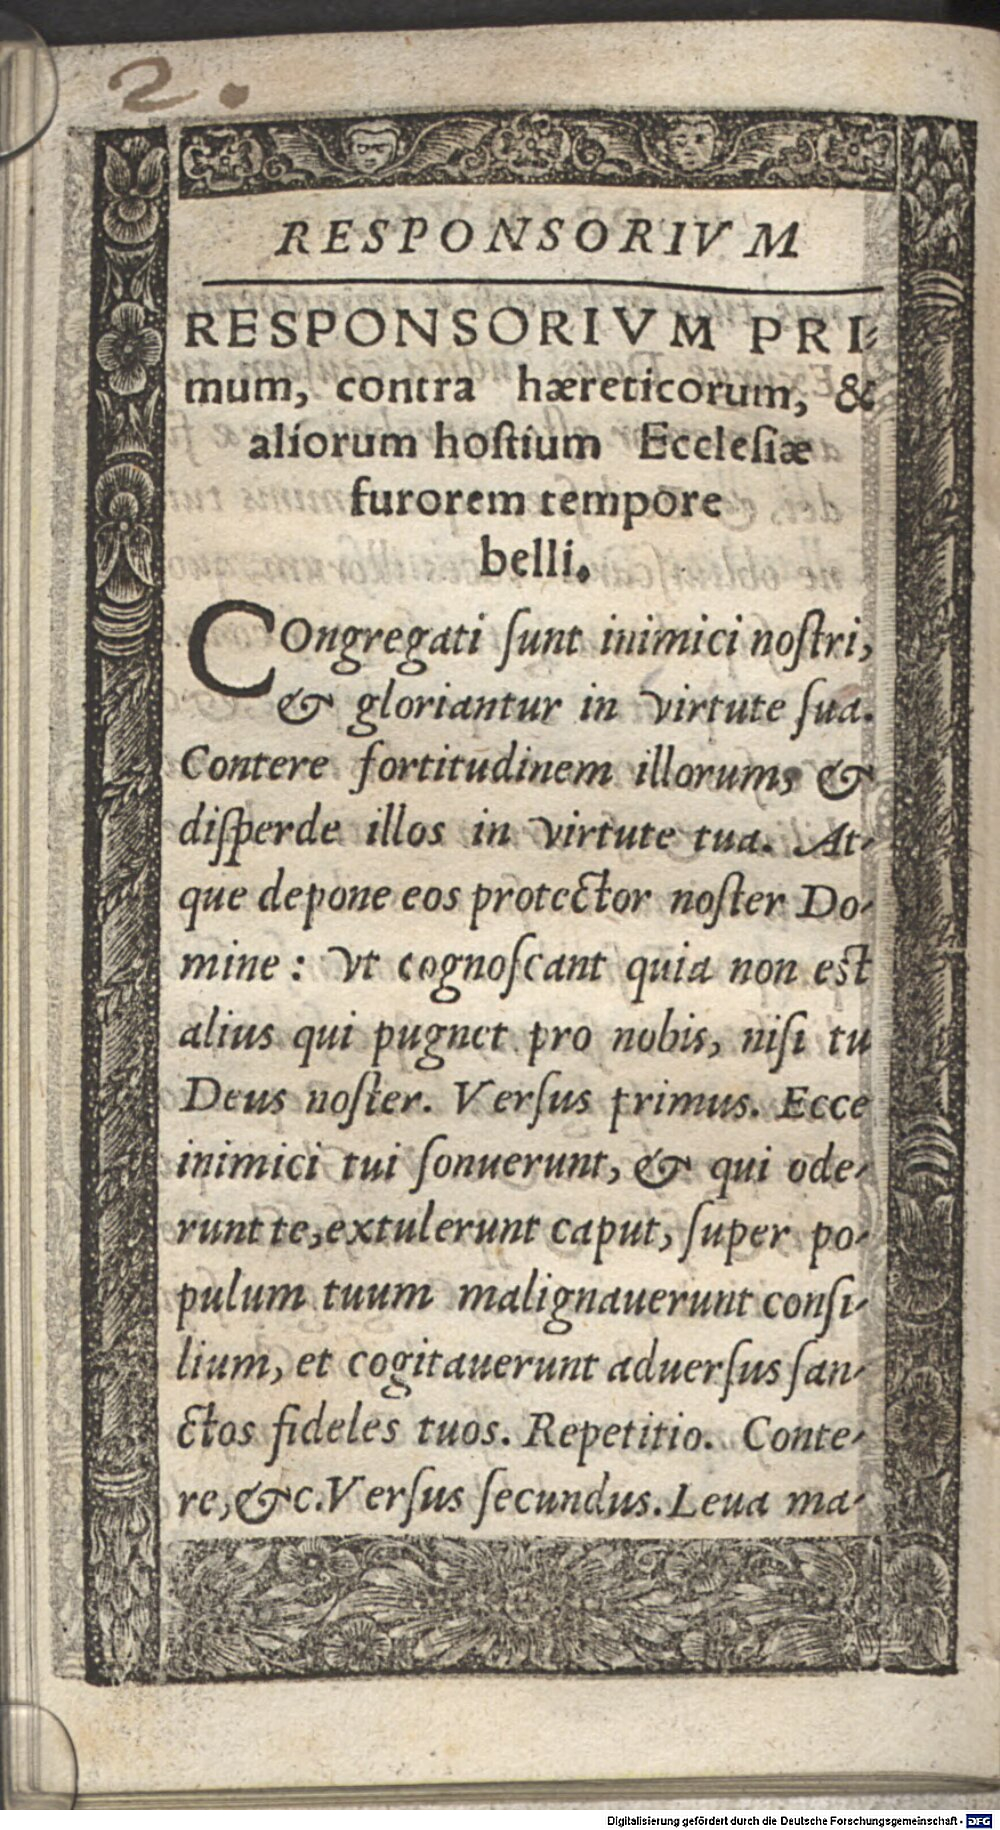 2.
RESPONSORIVM
RESPONSORIVM PRI-
mum, contra hæreticorum, &
aliorum hoſtium Eccleſiæ
furorem tempore
belli.
COngregati ſunt inimici noſtri,
& gloriantur in virtute ſua.
Contere fortitudinem illorum, &
diſperde illos in virtute tua. At-
que depone eos protector noſter Do-
mine : vt cognoſcant quia non est
alius qui pugnet pro nobis, niſi tu
Deus noſter. Verſus primus. Ecce
inimici tui ſonuerunt, & qui ode-
runt te, extulerunt caput, ſuper po-
pulum tuum malignauerunt conſi-
lium, et cogitauerunt aduerſus ſan-
ctos fideles tuos. Repetitio. Conte-
re, &c. Verſus ſecundus. Leua ma-
Digitalisierung gefördert durch die Deutsche Forschungsgemeinschaft - DFG